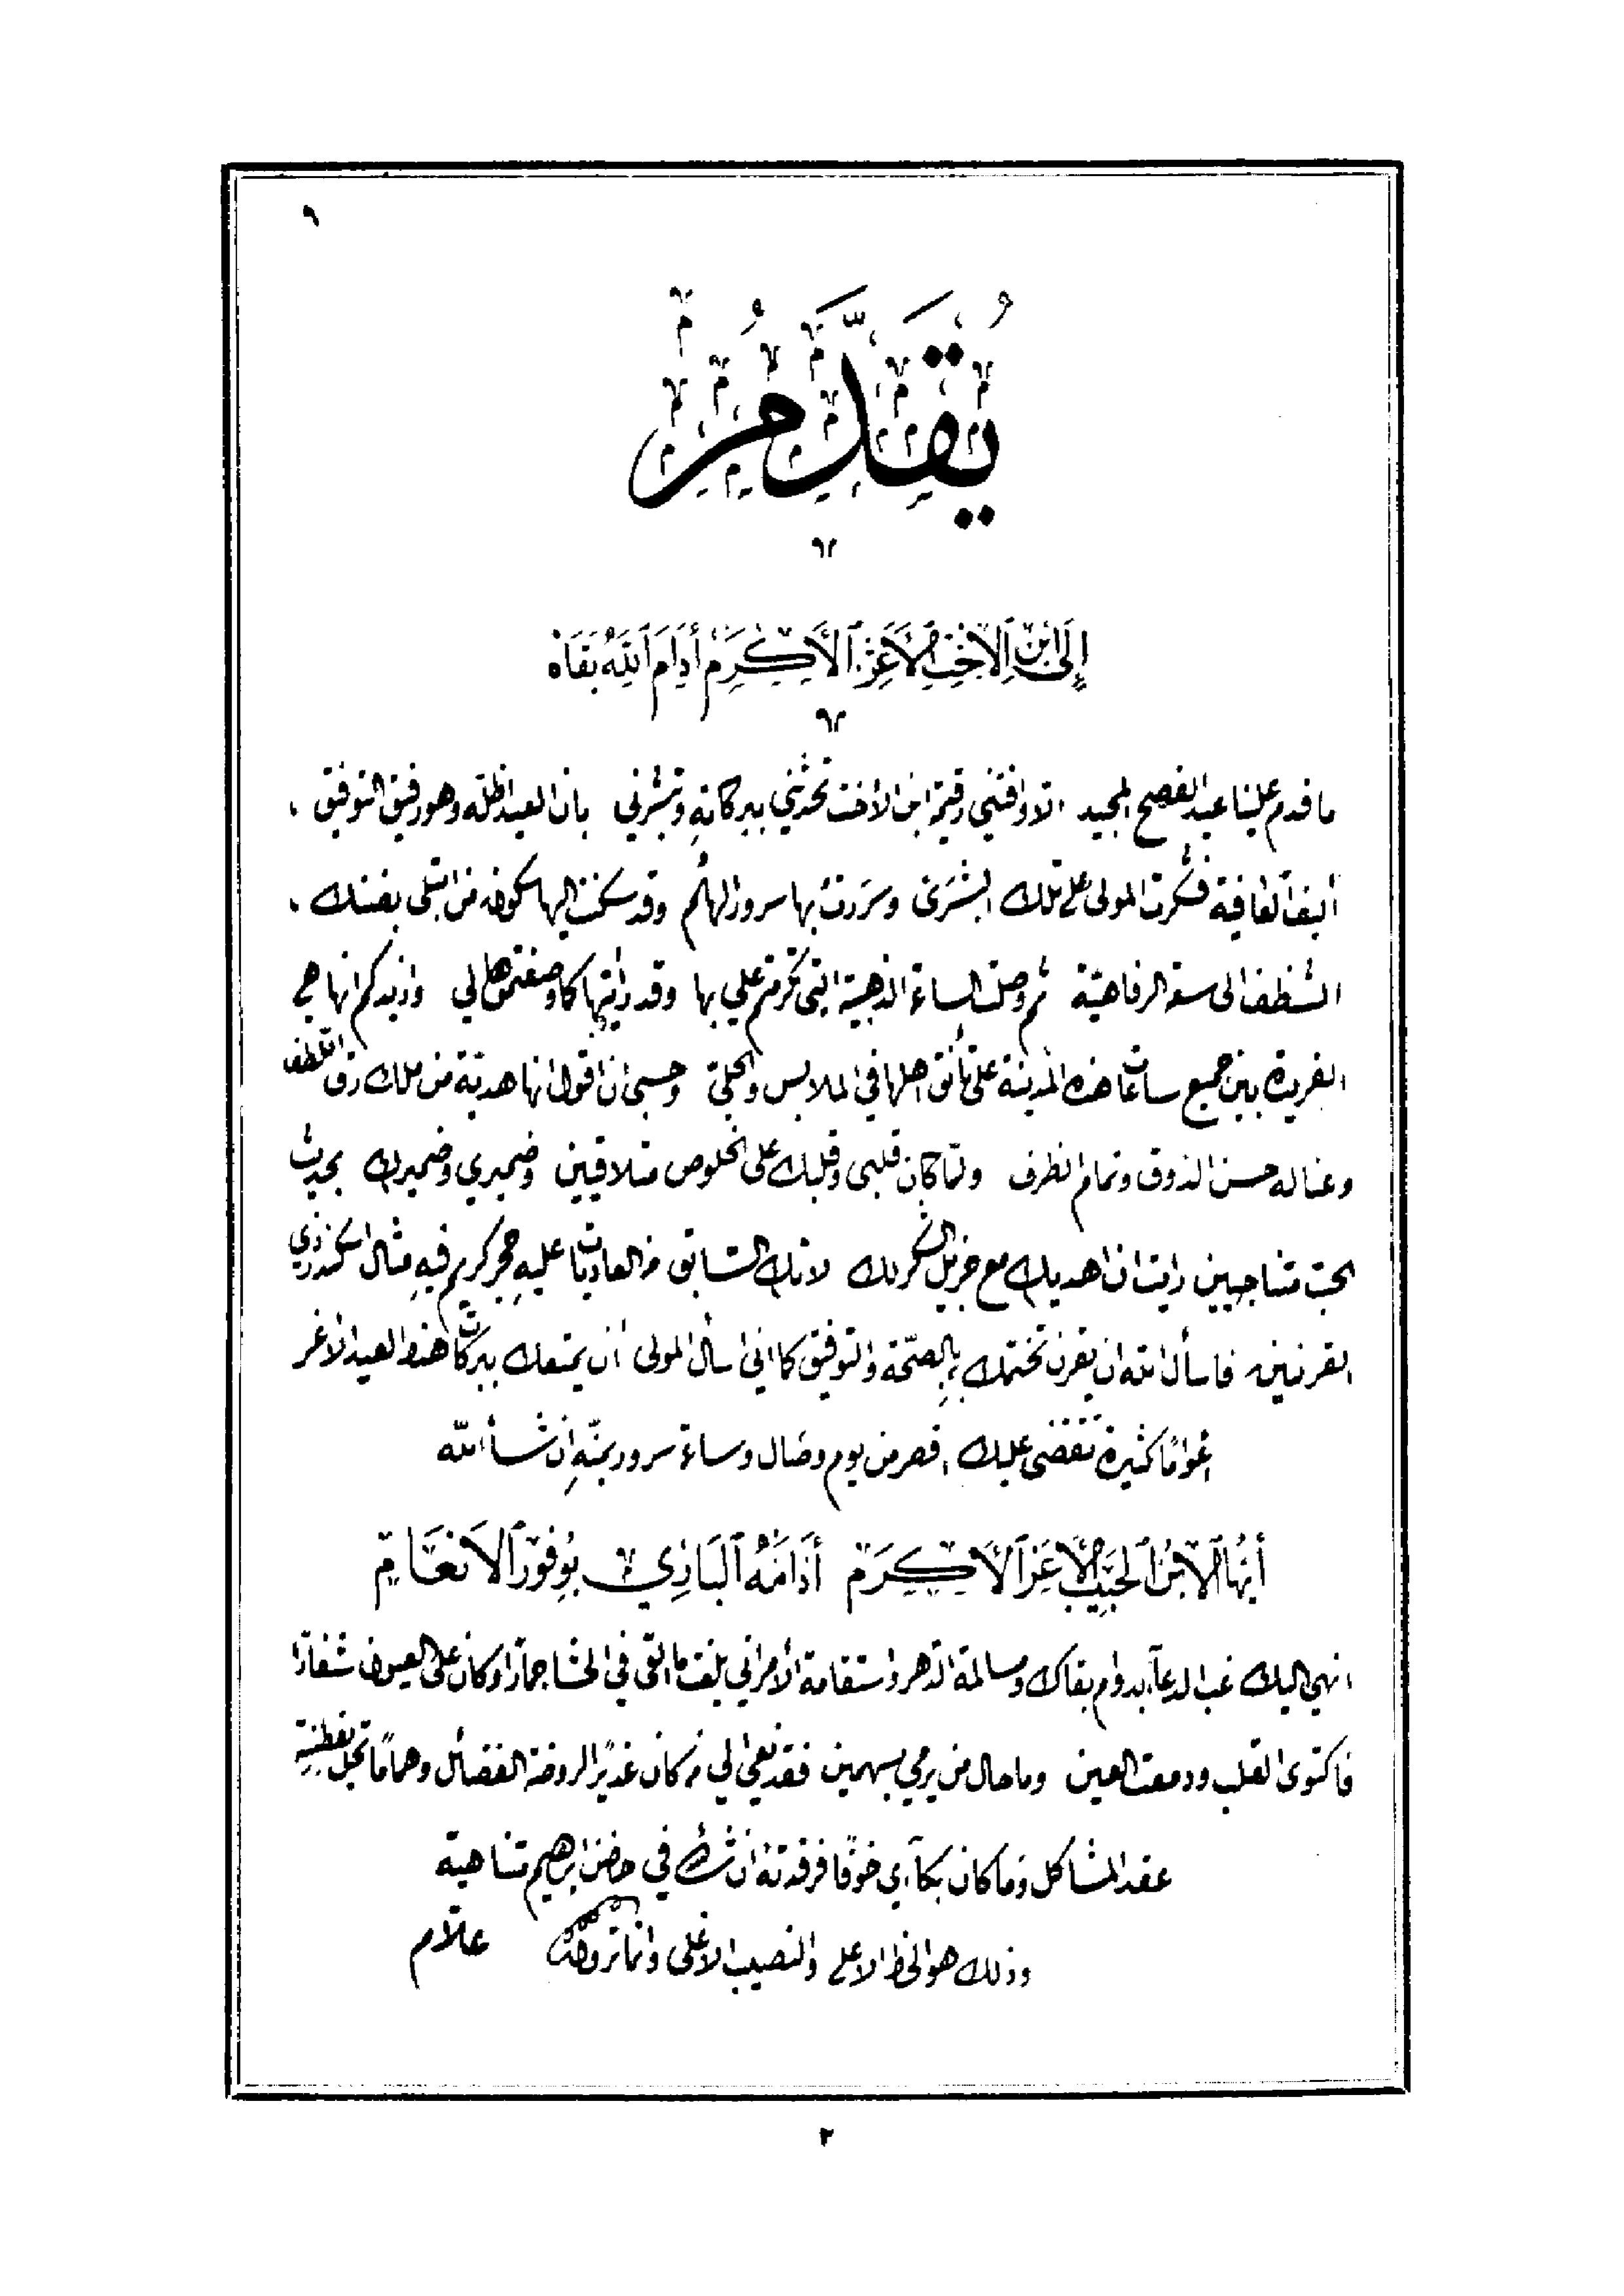 يُقَدَّمُ
إِلَى ابْنِ الْأُخْتِ الْأَعَزِّ الْأَكْرَمِ أَدَامَ اللّٰهُ بَقَاهُ
ما قدم علينا عيد الفصح المجيد الا وافتني رقيمة ابن الأخت تحدثني ببركاته وتبشرني بان العيد اظله وهو رفيق التوفيق
أليف العافية فشكرت المولى على تلك البشرى وسررت بها سرور الملم وقد سكنت اليها سكون من انتقل بغتك
الشظف الى سعة الرفاهية ثم وصلت الساعة الذهبية التي تكرمتم علي بها وقد رأيتها كما وصفتموها لي وازيدكم انها هي
الفريدة بين جميع ساعات هذه المدينة على تأنق اهلها في الملابس والحلي وحسبي ان اقول انها هدية من ملك رق اللطف
وعنا له حسن الذوق وتمام الظرف ولما كان قلبي وقلبك على الخلوص متلاقيين وضميري وضميرك بحديث
الحب متناجيين رايت ان اهديك مع جزيل الشكر لك لاتك السابق من العاديات عليه حجر كريم فيه مثال اسكندر ذي
القرنين فاسأل الله ان يقرن تختمك به بالصحة والتوفيق كما اني اسأل المولى أن يمتعك ببركات هذا العيد الاغر
اعوامًا كثيرة تنقضي عليك اقصر من يوم وصال وساعة سرور بمنّهِ إن شأ الله
أَيُّهَا الِابْنُ الْحَبِيبُ الْأَعَزُّ الْأَكْرَمُ أَدَامَهُ الْبَارِي بِوُفُورِ الْإِنْعَامِ
انهي اليك غب الدعآء بدوام بقاك ومسالمة الدهر واستقامة الأمر اني بلغت ما القى في الحشا جمارًا وكان على العيون شفارًا
فاكتوى القلب ودمعت العين وما حال من يرمي بسهمين فقد نعي الي من كان غديرًا لروضة الفضائل وهمامًا تحل بفطنته
عقد المشاكل وما كان بكآءي خوفًا من رقدته أن شك في حضن ابرهيم تناهية
وذلك هو الحظ الاعلى والنصيب الاغلى وانما تروعك علام
٢